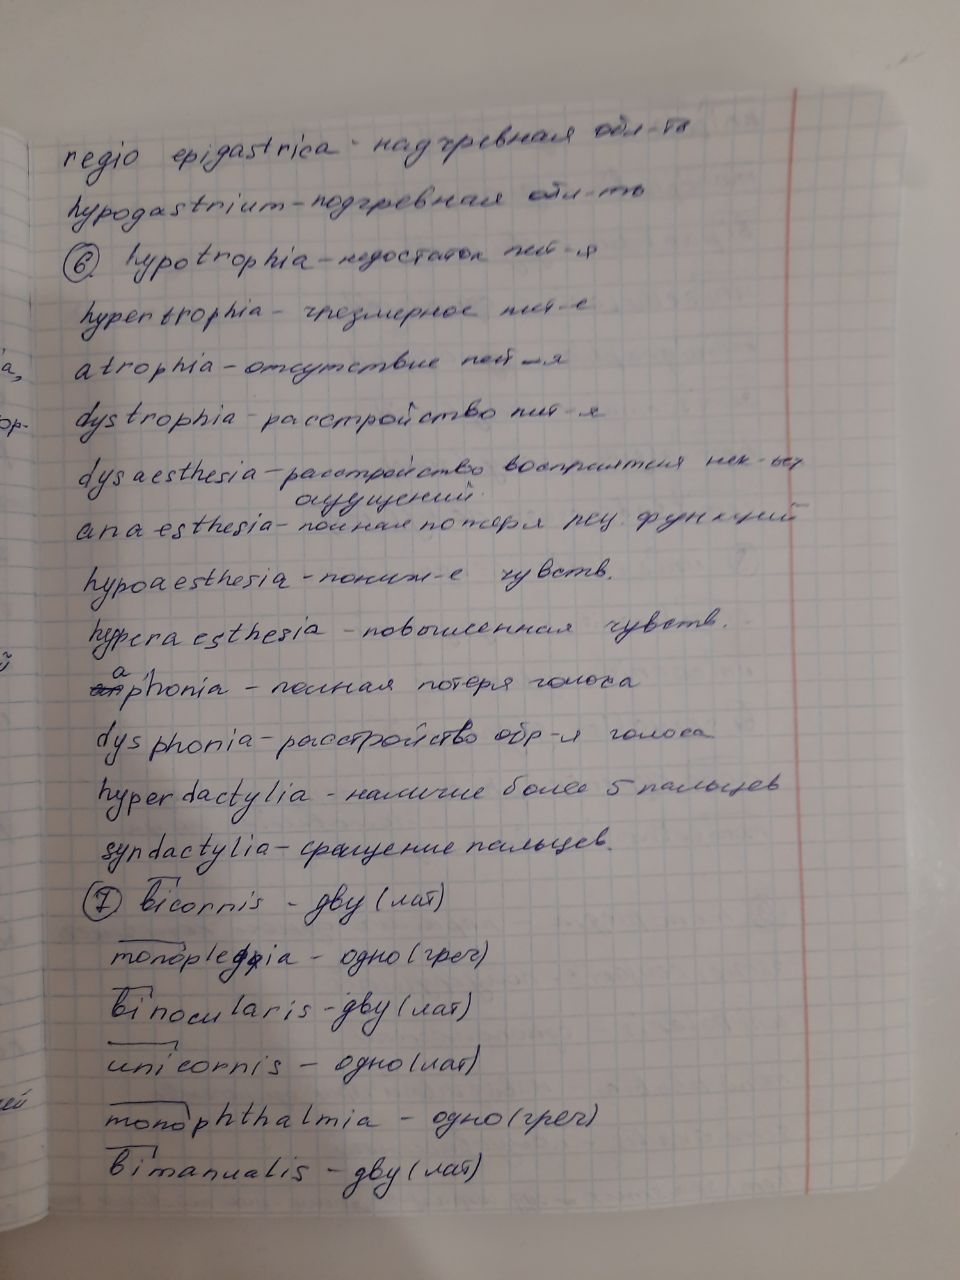 regio epigastrica - надчревная обл-ть
hypogastrium - подчревная обл-ть
6 hypotrophia - недостаток пит-я
hypertrophia - чрезмерное пит-е
а,
atrophia - отсутствие пит-я
ор-
dystrophia - расстройство пит-я
dysaesthesia - расстройство восприятия нек-ых
ощущений
anaesthesia - полная потеря рец. функций
hypoaesthesia - пониж-е чувств.
hyperaesthesia - повышенная чувств.
й
aphonia - полная потеря голоса
dysphonia - расстройство обр-я голоса
hyperdactylia - наличие более 5 пальцев
syndactylia - сращение пальцев.
7 bicornis - дву (лат)
monoplegia - одно (греч)
binocularis - дву (лат)
unicornis - одно (лат)
ей
monophthalmia - одно (греч)
bimanualis - дву (лат)